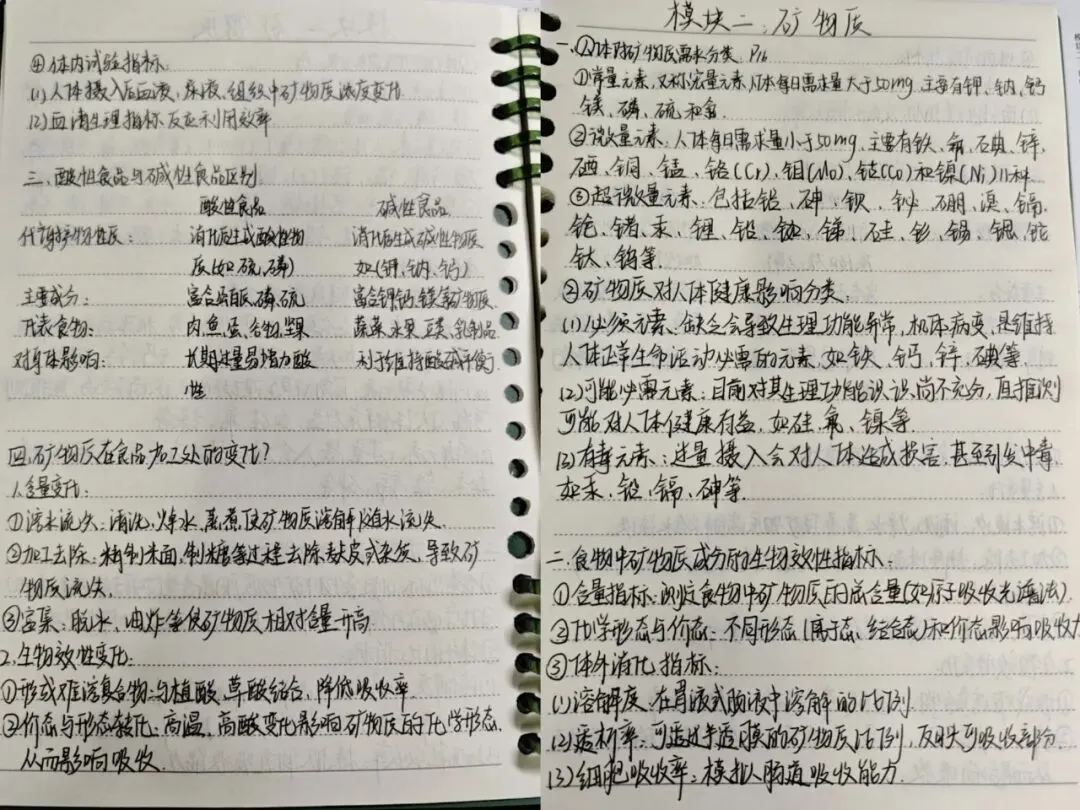 模块二：矿物质
一、①人体内矿物质需求分类 P16
①常量元素，又称宏量元素，人体每日需求量大于50mg，主要有钾、钠、钙
镁、磷、硫和氯.
②微量元素：人体每日需求量小于50mg，主要有铁、氟、碘、锌、
硒、铜、锰、铬(Cr)、钼(Mo)、钴(Co)和镍(Ni)11种
③超微量元素：包括铅、砷、钡、铋、硼、溴、镉、
铯、锗、汞、锂、铅、铷、锑、硅、钐、锡、锶、铊
钛、钨等.
②矿物质对人体健康影响分类：
(1)必须元素、缺乏会导致生理功能异常，机体病变，是维持
人体正常生命活动必需的元素，如铁、钙、锌、碘等
(2)可能必需元素：目前对其生理功能认识尚不充分，但推测
可能对人体健康有益，如硅、氟、镍等.
(3)有毒元素：过量摄入会对人体造成损害，甚至引发中毒
如汞、铅、镉、砷等.
二、食物中矿物质成分的生物效性指标：
①含量指标：测定食物中矿物质的总含量(如原子吸收光谱法).
②化学形态与价态：不同形态(离子态、结合态)和价态影响吸收力
③体外消化指标：
(1)溶解度：在胃液或肠液中溶解的比例.
(2)透析率：可透过半透膜的矿物质比例，反映可吸收部分.
(3)细胞吸收率：模拟人肠道吸收能力.
④体内试验指标：
(1)人体摄入后血液、尿液、组织中矿物质浓度变化
(2)血清生理指标反应利用效率
三、酸性食品与碱性食品区别
酸性食品 碱性食品
代谢产物性质： 消化后生成酸性物 消化后生成碱性物质
质(如硫、磷) 如(钾、钠、钙)
主要成分： 富含蛋白质、磷、硫 富含钾、钙、镁等矿物质.
代表食物： 肉、鱼、蛋、谷物、坚果 蔬菜、水果、豆类、乳制品
对身体影响： 长期过量易增加酸 利于维持酸碱平衡.
性
四、矿物质在食品加工处的变化？
1.含量变化：
①溶水流失：清洗、焯水、蒸煮使矿物质溶解随水流失.
②加工去除：精制米面、制糖等过程去除表皮或杂质，导致矿
物质流失.
③富集：脱水、油炸等使矿物质相对含量升高
2.生物效性变化：
①形成难溶复合物：与植酸、草酸结合，降低吸收率
②价态与形态转化：高温、高酸变化影响矿物质的化学形态，
从而影响吸收.